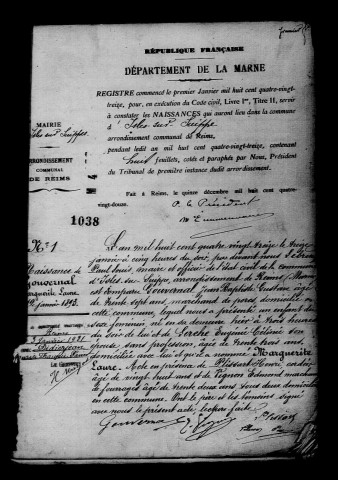 RÉPUBLIQUE FRANÇAISE
DÉPARTEMENT DE LA MARNE
REGISTRE commencé le premier Janvier mil huit cent quatre-vingt-
treize, pour, en exécution du Code civil, Livre Ier, Titre II, servir
à constater les NAISSANCES qui auront lieu dans la commune
d'Isles-sur-Suippe
arrondissement communal de Reims,
pendant ledit an mil huit cent quatre-vingt-treize, contenant
huit feuillets, cotés et paraphés par Nous, Président
du Tribunal de première instance dudit arrondissement.
Fait à Reims, le quinze décembre mil huit cent quatre-
vingt-douze.
P. le Président
MAIRIE
Isles-sur-Suippe
ARRONDISSEMENT
COMMUNAL
DE REIMS
1038
N° 1
Naissance de
Gouvernal
Marguerite Laure
12 janvier 1893.
L'an mil huit cent quatre vingt treize le treize
janvier à cinq heures du soir, par devant nous
Paul Louis, maire et officier de l'état civil de la commune
d'Isles sur Suippe, arrondissement de Reims, Marne
est comparu Gouvernal Jean Baptiste Gustave âgé
de trente sept ans, marchand de porcs, domicilié en
cette commune, lequel nous a présenté un enfant du
sexe féminin né en sa demeure hier à trois heures
du soir de lui et de Eugénie Célénie son
épouse sans profession, âgée de trente trois ans,
domiciliée avec lui et qu'il a nommé Marguerite
Laure. Acte en présence de Plissart Henri,
âgé de vingt huit ans et de Vignon Edmond marchand
de fourrages âgé de trente deux ans tous deux domiciliés
en cette commune. Ont le père et les témoins signé
avec nous le présent acte, lecture faite.
Gouvernal
Plissart